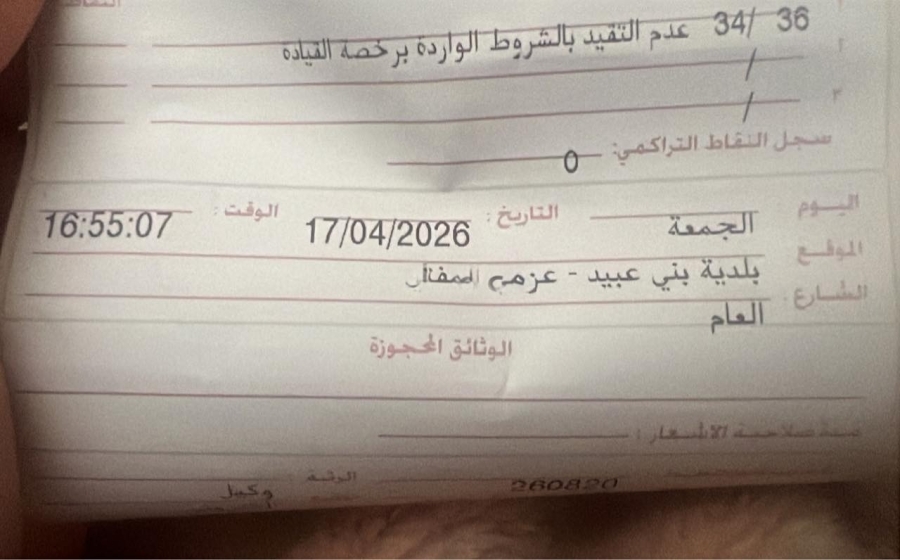 36 /34 عدم التقيد بالشروط الواردة برخصة القياده
٢ /
٣ /
سجل النقاط التراكمي: 0
اليوم الجمعة التاريخ: 17/04/2026 الوقت: 16:55:07
الموقع بلدية بني عبيد - عزمي المفتي
الشارع العام
الوثائق المحجوزة
مدة صلاحية الاشعار:
260820 الرتبة وكيل